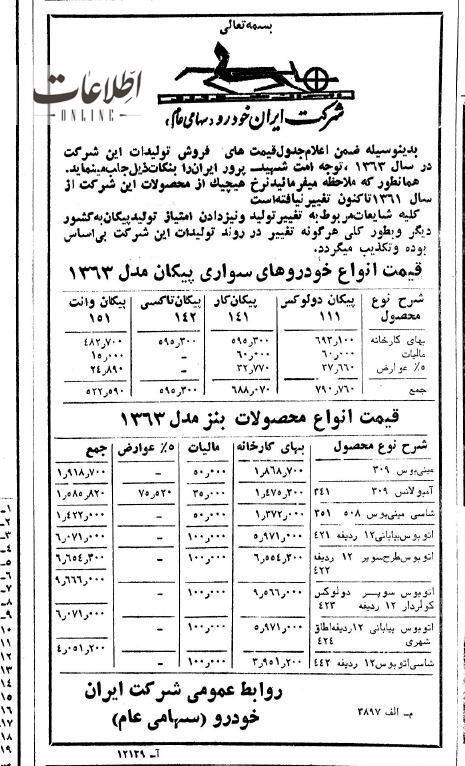 بسمه تعالی
اطلاعات
ONLINE
شرکت ایران خودرو (سهامی عام)
بدینوسیله ضمن اعلام جدول قیمت های فروش تولیدات این شرکت
در سال ۱۳۶۳، توجه امت شهید پرور ایران را بنکات ذیل جلب مینماید.
همانطور که ملاحظه میفرمائید نرخ هیچیک از محصولات این شرکت از
سال ۱۳۶۱ تاکنون تغییر نیافته است
کلیه شایعات مربوط به تغییر تولید و نیز دادن امتیاز تولید پیکان به کشور
دیگر و بطور کلی هرگونه تغییر در روند تولیدات این شرکت بی اساس
بوده و تکذیب میگردد.
قیمت انواع خودروهای سواری پیکان مدل ۱۳۶۳
شرح نوع محصول پیکان دولوکس ۱۱۱ پیکان کار ۱۴۱ پیکان تاکسی ۱۴۲ پیکان وانت ۱۵۱
بهای کارخانه ۶۹۳٫۱۰۰ ۵۹۵٫۳۰۰ ۵۹۵٫۳۰۰ ۴۸۲٫۷۰۰
مالیات ۶۰٫۰۰۰ ۶۰٫۰۰۰ – ۱۵٫۰۰۰
۵٪ عوارض ۳۷٫۶۶۰ ۳۲٫۷۷۰ – ۲۴٫۸۹۰
جمع ۷۹۰٫۷۶۰ ۶۸۸٫۰۷۰ ۵۹۵٫۳۰۰ ۵۲۲٫۵۹۰
قیمت انواع محصولات بنز مدل ۱۳۶۳
شرح نوع محصول بهای کارخانه مالیات ۵٪ عوارض جمع
مینی‌بوس ۳۰۹ ۱٫۸۶۸٫۷۰۰ ۵۰٫۰۰۰ – ۱٫۹۱۸٫۷۰۰
آمبولانس ۳۰۹ ۳۴۱ ۱٫۴۷۵٫۳۰۰ ۳۵٫۰۰۰ ۷۵٫۵۲۰ ۱٫۵۸۵٫۸۲۰
شاسی مینی‌بوس ۵۰۸ ۳۵۱ ۱٫۳۷۲٫۰۰۰ ۵۰٫۰۰۰ – ۱٫۴۲۲٫۰۰۰
اتوبوس بیابانی ۱۲ ردیفه ۴۲۱ ۵٫۹۷۱٫۰۰۰ ۱۰۰٫۰۰۰ – ۶٫۰۷۱٫۰۰۰
اتوبوس طرح سوپر ۱۲ ردیفه ۴۲۲ ۶٫۵۵۴٫۳۰۰ ۱۰۰٫۰۰۰ – ۶٫۶۵۴٫۳۰۰
اتوبوس سوپر دولوکس کولردار ۱۲ ردیفه ۴۲۳ ۹٫۵۶۶٫۰۰۰ ۱۰۰٫۰۰۰ – ۹٫۶۶۶٫۰۰۰
اتوبوس بیابانی ۱۲ ردیفه اطاق شهری ۴۲۴ ۵٫۹۷۱٫۰۰۰ ۱۰۰٫۰۰۰ – ۶٫۰۷۱٫۰۰۰
شاسی اتوبوس ۱۲ ردیفه ۴۴۲ ۳٫۹۵۱٫۲۰۰ ۱۰۰٫۰۰۰ – ۴٫۰۵۱٫۲۰۰
روابط عمومی شرکت ایران
خودرو (سهامی عام)
م – الف ۳۸۹۷
آ – ۱۲۱۲۹